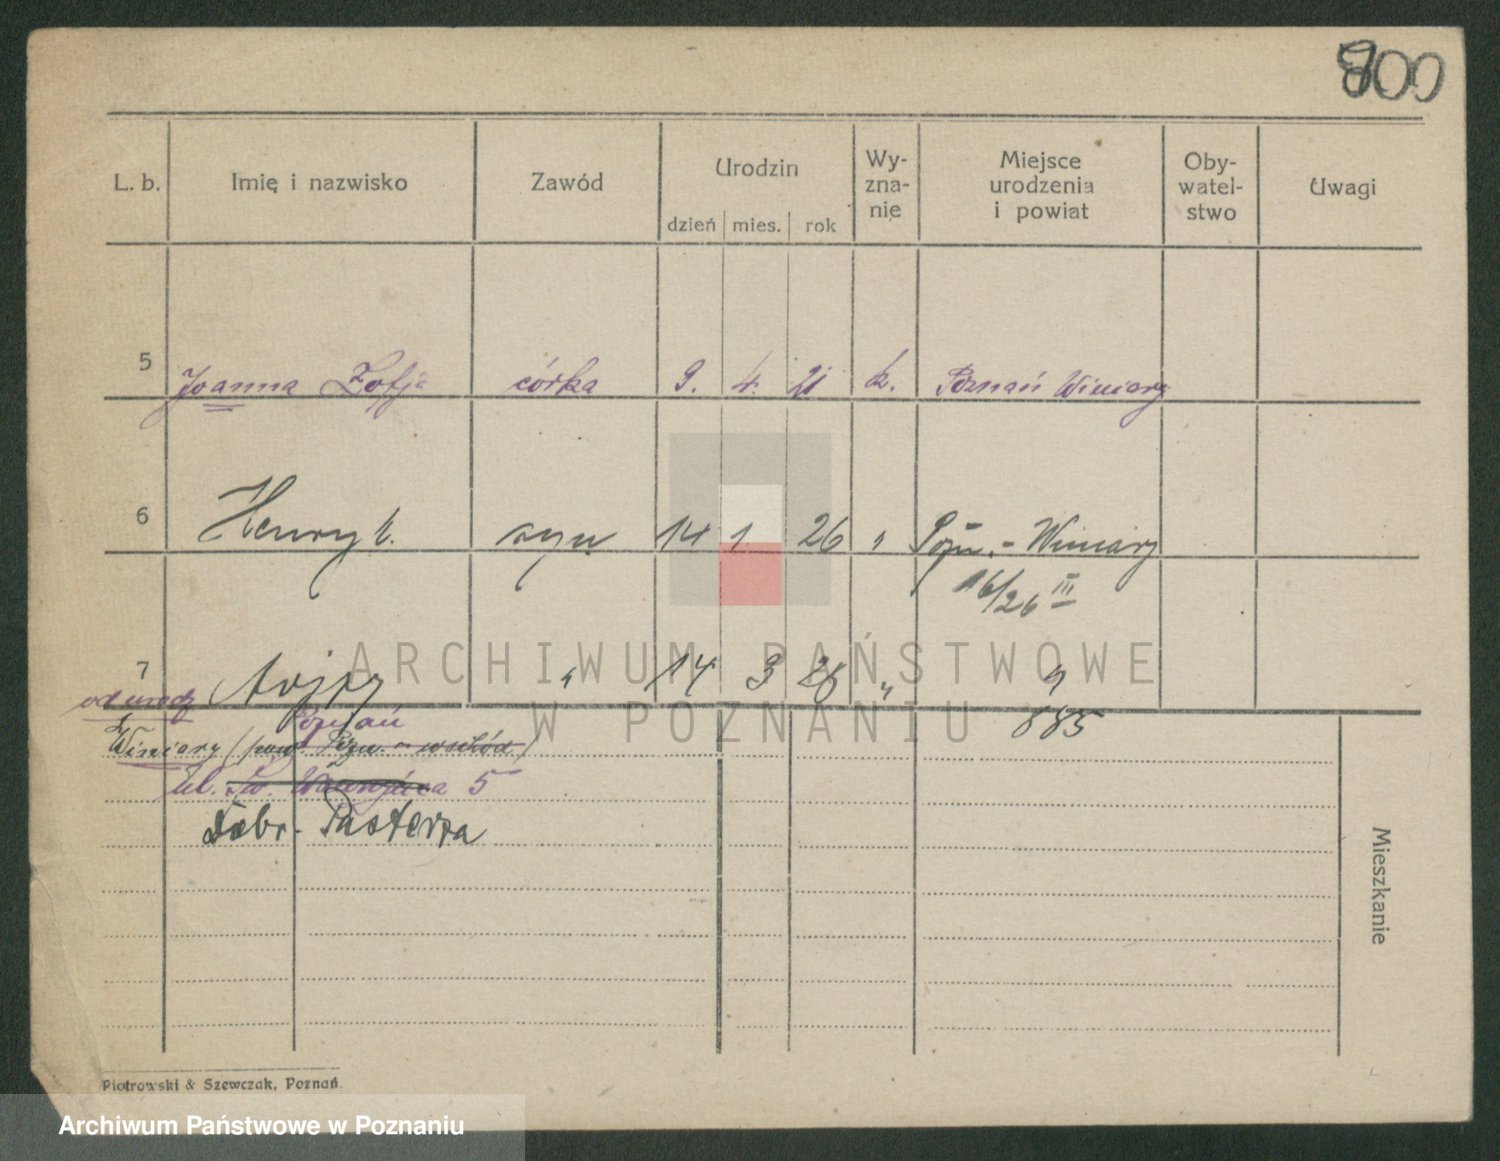 800
L. b. Imię i nazwisko Zawód Urodzin dzień mies. rok Wy-zna-nie Miejsce urodzenia i powiat Oby-watel-stwo Uwagi
5 Joanna Zofja córka 9. 4. 21 k. Poznań Winiary
6 Henryk. syn 14 1. 26 " Pozn. - Winiary
16/26 III
7 " 14 3 26 " "
885
od urodz
Poznań
Winiary (pow. Pozn. - wschód)
ul. Św. Wawrzyńca 5
Dąbr. Pasterza
Mieszkanie
Piotrowski & Szewczak, Poznań.
ARCHIWUM PAŃSTWOWE
W POZNANIU
Archiwum Państwowe w Poznaniu